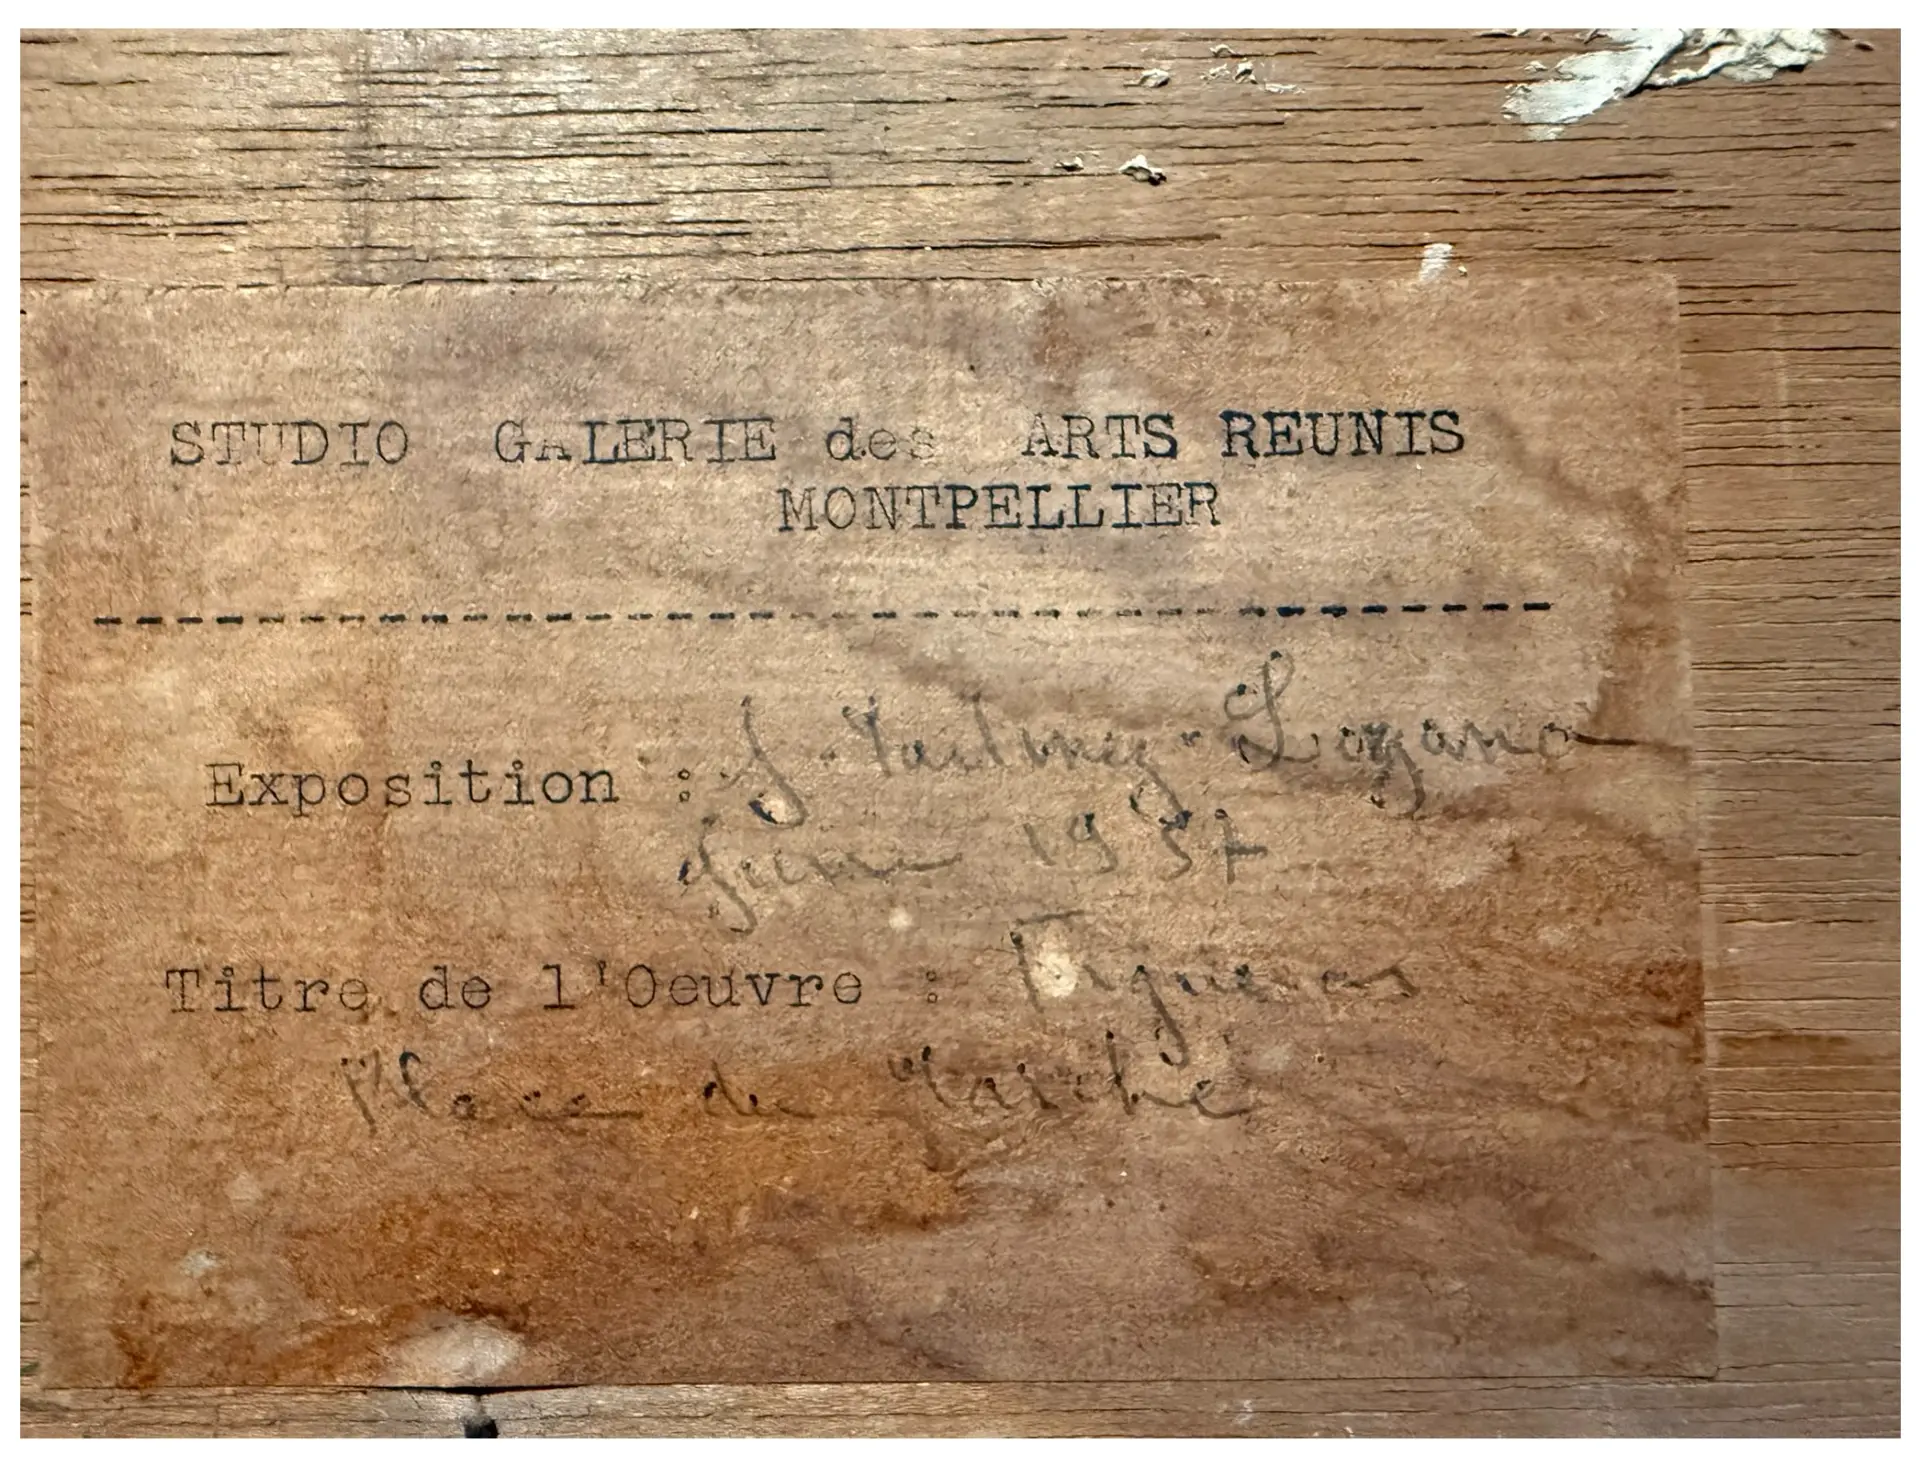 STUDIO GALERIE des ARTS REUNIS
MONTPELLIER
Exposition : J. Martinez-Lozano
Juin 1957
Titre de l'Oeuvre : Figueras
Place du Marché